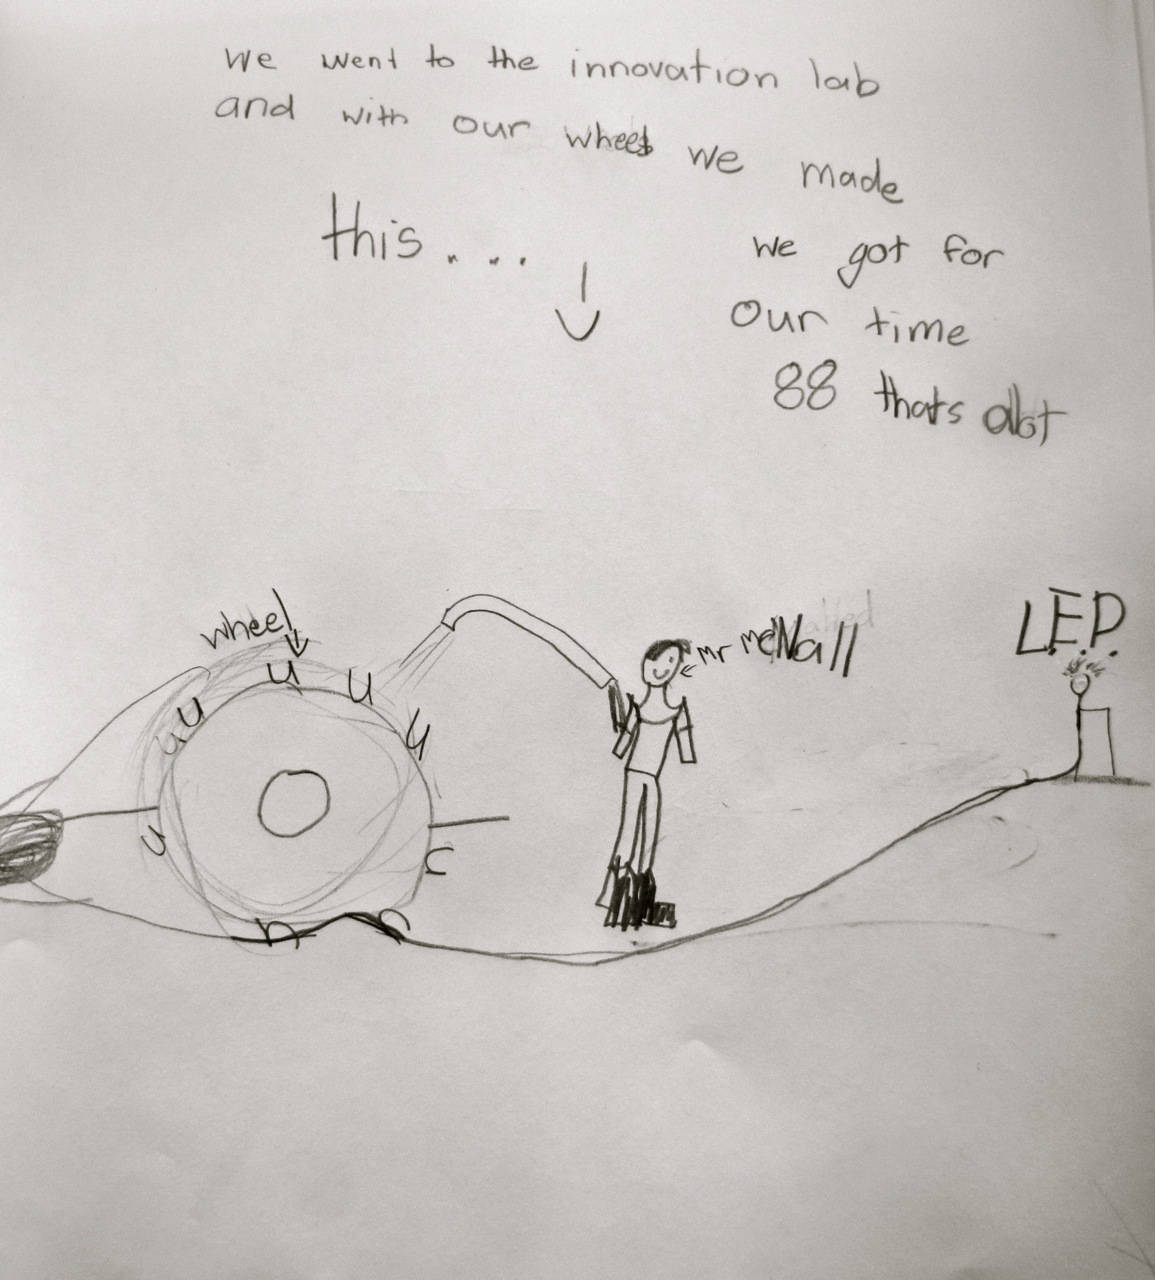 we went to the innovation lab
and with our wheel we made
this....
we got for
our time
88 thats alot
wheel
mr mcNall
L.E.D.
u
u
u
u
u
u
n
n
n